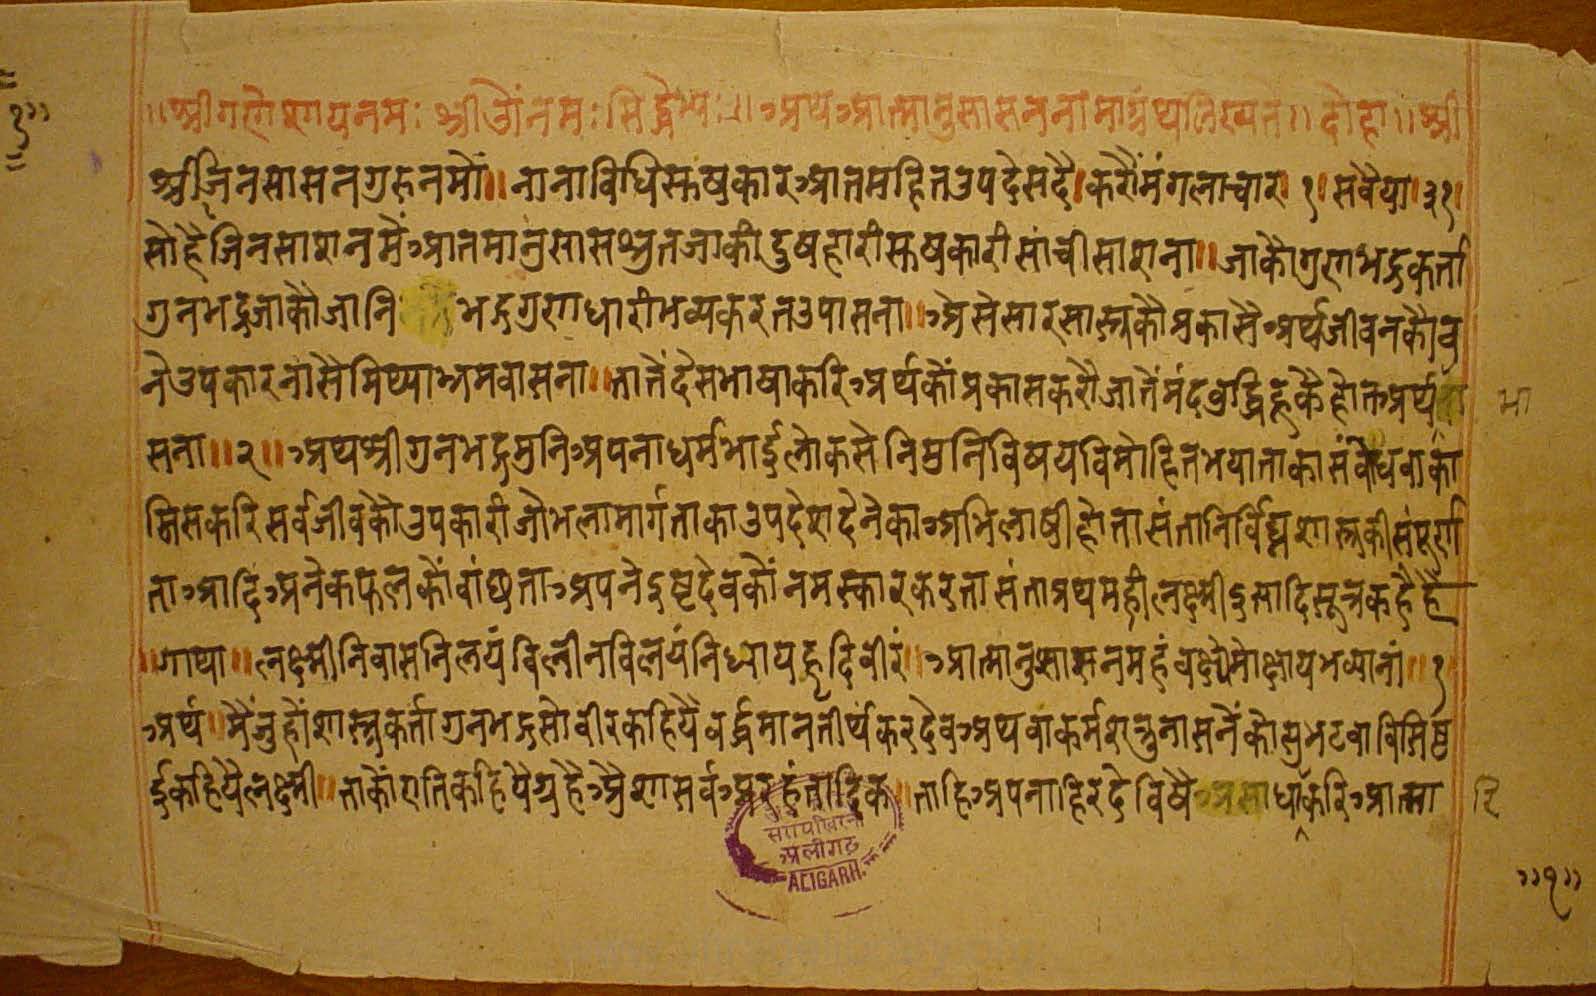 ॥श्रीगणेशायनमः श्रीओंनमः सिद्धेभ्यः॥ अथआत्मानुसासननामाग्रंथलिख्यते॥ दोहा॥ श्री
श्रीजिनसासनगुरुनमौं॥ नानाविधिसुखकार आतमहितउपदेसदै। करौंमंगलाचार १॥ सवैया ३१।
सोहैजिनसाशनमैं आतमानुसासश्रुतजाकीदुषहारीसुखकारीसांचीसाशना॥ जाकौगुणभद्रकर्त्ता
गुनभद्रजाकौजानि भद्रगुणधारीभव्यकरतउपासना॥ औसेसारसास्त्रकौप्रकासै अर्थजीवनकौव
नेउपकारनासैमिथ्याभ्रमवासना॥ तातैंदेसभाषाकरि अर्थकौंप्रकासकरौंजातैंमंदबुद्धिहूकैहोतअर्थभा
सना॥ २॥ अथश्रीगुनभद्रमुनि अपनाधर्मभाईलोकसेनिमुनिविषयविमोहितभयाताकासंबोधवाका
मिसकरिसर्वजीवकौउपकारीजोभलामार्गताकाउपदेशदेनेका अभिलाषीहोतासंतानिर्विघ्नशास्त्रकीसंपूर्ण
ता आदि अनेकफलकौंवांछता अपनेइष्टदेवकौंनमस्कारकरतासंताप्रथमहीलक्ष्मीइसादिसूत्रकहैहै
॥गाथा॥ लक्ष्मीनिवासनिलयंविलीनविलयंनिधायहृदिवीरं॥ आत्मानुशासनमहंवक्ष्येमोक्षायभव्यानां॥ १
अर्थ॥ मैंजुहौंशास्त्रकर्त्तागुनभद्रसोवीरकहियैवर्द्धमानतीर्थंकरदेव अथवाकर्मशत्रुनासनैंकौसुभटवाविसिष्ट
ईकहियैलक्ष्मी॥ ताकौंरातिकहियैग्रहै औशासर्व अरहंतादिक॥ ताहि अपनाहिरदेविषै अवधाकरि आत्मा
भा
रि
१
॥१॥
अलीगढ़
ALIGARH.